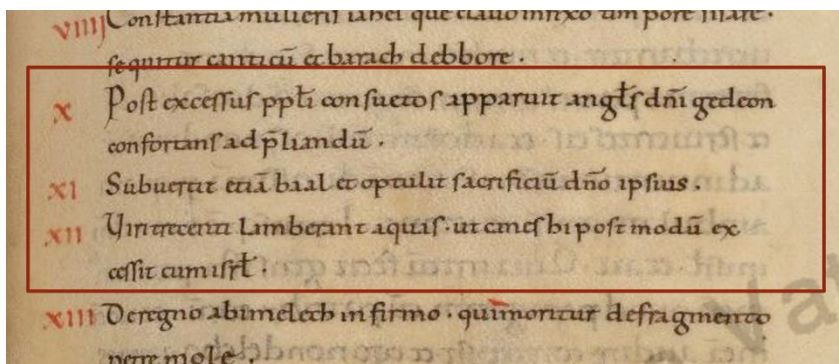 viiij Constantia mulieris iahel que clauo infixo timpore sisare ·
sequitur canticū et barach debbore ·
x Post excessus ppłi consuetos apparuit angłs dñi gedeon
confortans ad p̄liandū ·
xi Subuertit etiā baal et optulit sacrificiū dño ipsius ·
xii Viri trecenti lamberant aquis · ut canes hi post modū ex
cessit cum isrł ·
xiii De regno abimelech infirmo · qui moritur de fragmento
petre mole ·